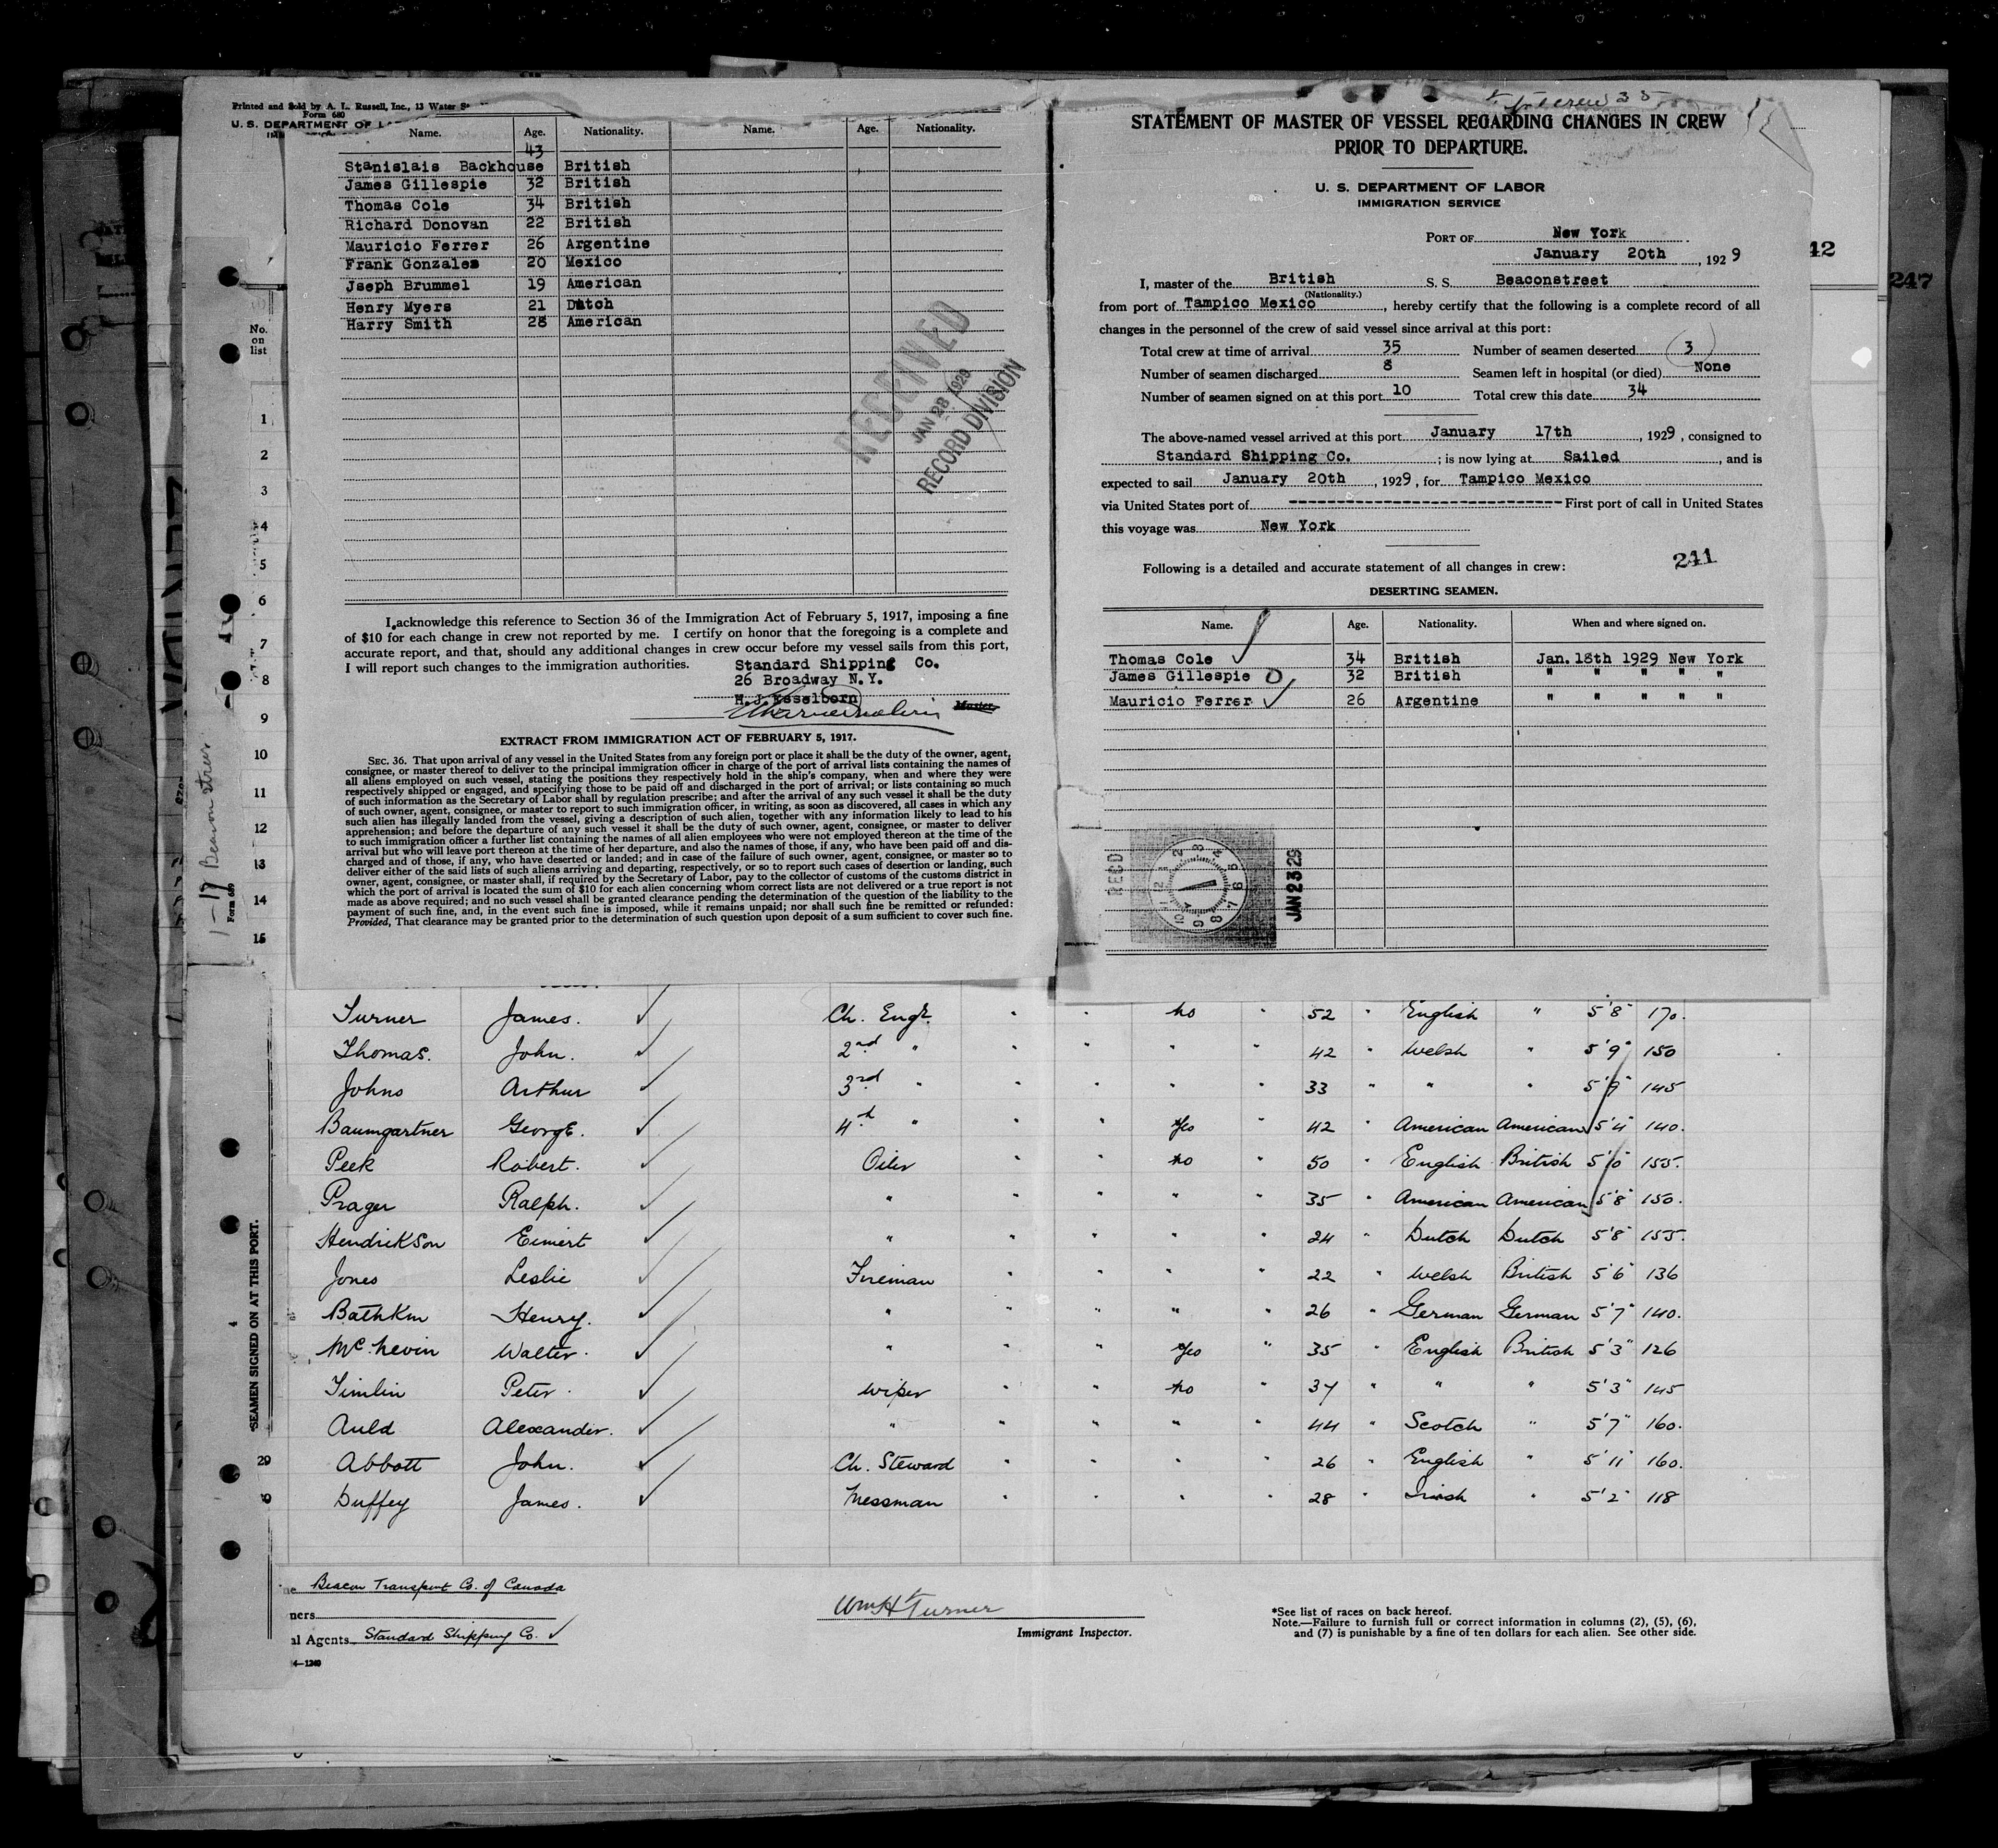 Printed and Sold by A. L. Russell, Inc., 13 Water
Form 680
U. S. DEPARTMENT OF
Name. Age. Nationality. Name. Age. Nationality.
43
Stanislais Backhouse British
James Gillespie 32 British
Thomas Cole 34 British
Richard Donovan 22 British
Mauricio Ferrer 26 Argentine
Frank Gonzales 20 Mexico
Jseph Brummel 19 American
Henry Myers 21 Dutch
Harry Smith 28 American
RECEIVED
JAN 28 1929
RECORD DIVISION
I acknowledge this reference to Section 36 of the Immigration Act of February 5, 1917, imposing a fine
of $10 for each change in crew not reported by me. I certify on honor that the foregoing is a complete and
accurate report, and that, should any additional changes in crew occur before my vessel sails from this port,
I will report such changes to the immigration authorities.
Standard Shipping Co.
26 Broadway N.Y.
H.J.Esselborn
Master.
EXTRACT FROM IMMIGRATION ACT OF FEBRUARY 5, 1917.
SEC. 36. That upon arrival of any vessel in the United States from any foreign port or place it shall be the duty of the owner, agent,
consignee, or master thereof to deliver to the principal immigration officer in charge of the port of arrival lists containing the names of
all aliens employed on such vessel, stating the positions they respectively hold in the ship's company, when and where they were
respectively shipped or engaged, and specifying those to be paid off and discharged in the port of arrival; or lists containing so much
of such information as the Secretary of Labor shall by regulation prescribe; and after the arrival of any such vessel it shall be the duty
of such owner, agent, consignee, or master to report to such immigration officer, in writing, as soon as discovered, all cases in which any
such alien has illegally landed from the vessel, giving a description of such alien, together with any information likely to lead to his
apprehension; and before the departure of any such vessel it shall be the duty of such owner, agent, consignee, or master to deliver
to such immigration officer a further list containing the names of all alien employees who were not employed thereon at the time of the
arrival but who will leave port thereon at the time of her departure, and also the names of those, if any, who have been paid off and dis-
charged and of those, if any, who have deserted or landed; and in case of the failure of such owner, agent, consignee, or master so to
deliver either of the said lists of such aliens arriving and departing, respectively, or so to report such cases of desertion or landing, such
owner, agent, consignee, or master shall, if required by the Secretary of Labor, pay to the collector of customs of the customs district in
which the port of arrival is located the sum of $10 for each alien concerning whom correct lists are not delivered or a true report is not
made as above required; and no such vessel shall be granted clearance pending the determination of the question of the liability to the
payment of such fine, and, in the event such fine is imposed, while it remains unpaid; nor shall such fine be remitted or refunded:
Provided, That clearance may be granted prior to the determination of such question upon deposit of a sum sufficient to cover such fine.
No. on list
1
2
3
4
5
6
7
8
9
10
11
12
13
14
15
1-17 Beacon street
Form 689
STATEMENT OF MASTER OF VESSEL REGARDING CHANGES IN CREW
PRIOR TO DEPARTURE.
U. S. DEPARTMENT OF LABOR
IMMIGRATION SERVICE
PORT OF New York
January 20th, 1929
I, master of the British S. S. Beaconstreet
(Nationality.)
from port of Tampico Mexico, hereby certify that the following is a complete record of all
changes in the personnel of the crew of said vessel since arrival at this port:
Total crew at time of arrival 35 Number of seamen deserted 3
Number of seamen discharged 8 Seamen left in hospital (or died) None
Number of seamen signed on at this port 10 Total crew this date 34
The above-named vessel arrived at this port January 17th, 1929, consigned to
Standard Shipping Co.; is now lying at Sailed, and is
expected to sail January 20th, 1929, for Tampico Mexico
via United States port of First port of call in United States
this voyage was New York
241
Following is a detailed and accurate statement of all changes in crew:
DESERTING SEAMEN.
Name. Age. Nationality. When and where signed on.
Thomas Cole 34 British Jan. 18th 1929 New York
James Gillespie 32 British " " " " "
Mauricio Ferrer 26 Argentine " " " " "
REC'D
1 2 3 4 5 6 7 8 9 10 11 12
JAN 23 29
42
247
Turner James. Ch. Engr. " " no " 52 " English " 5'8" 170.
Thomas. John. 2nd " " " " " 42 " Welsh " 5'9" 150
Johns Arthur 3rd " " " " " 33 " " " 5'9" 145
Baumgartner George. 4th " " " Yes " 42 " American American 5'4" 140.
Peek Robert. Oiler " " no " 50 " English British 5'6" 155.
Prager Ralph. " " " " " 35 " American American 5'8" 150.
Hendrikson Eimert " " " " " 24 " Dutch Dutch 5'8" 155.
Jones Leslie Fireman " " " " 22 " Welsh British 5'6" 136
Bathkm Henry. " " " " " 26 " German German 5'7" 140.
McNevin Walter. " " " Yes " 35 " English British 5'3" 126
Timlin Peter. Wiper " " no " 37 " " " 5'3" 145
Auld Alexander. " " " " " 44 " Scotch " 5'7" 160.
29 Abbott John. Ch. Steward " " " " 26 " English " 5'11" 160.
Duffey James. Messman " " " " 28 " Irish " 5'2" 118
SEAMEN SIGNED ON AT THIS PORT.
Beacon Transport Co. of Canada
ners
al Agents Standard Shipping Co.
4-1240
Wm H Turner
Immigrant Inspector.
*See list of races on back hereof.
Note.—Failure to furnish full or correct information in columns (2), (5), (6),
and (7) is punishable by a fine of ten dollars for each alien. See other side.